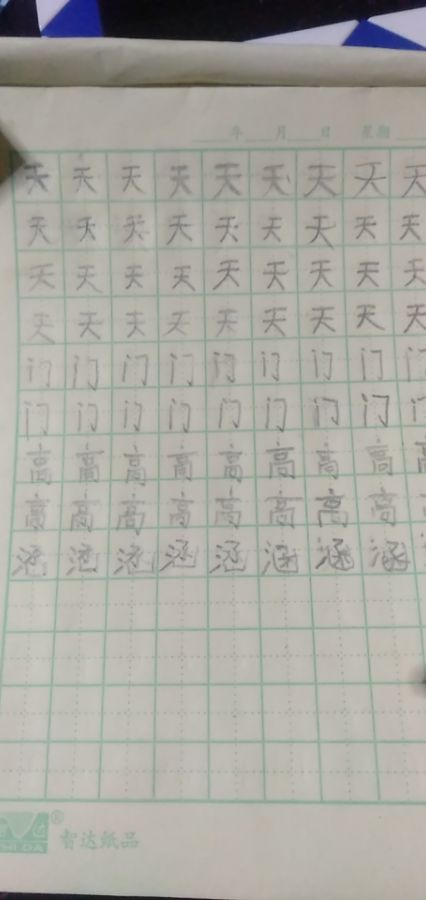 年 月 日 星期
天天天天天天天天天
天天天天天天天天天
天天天天天天天天天
天天天天天天天天天
门门门门门门门门门
门门门门门门门门门
高高高高高高高高高
高高高高高高高高
涵涵涵涵涵涵涵涵
智达纸品
ZHI DA